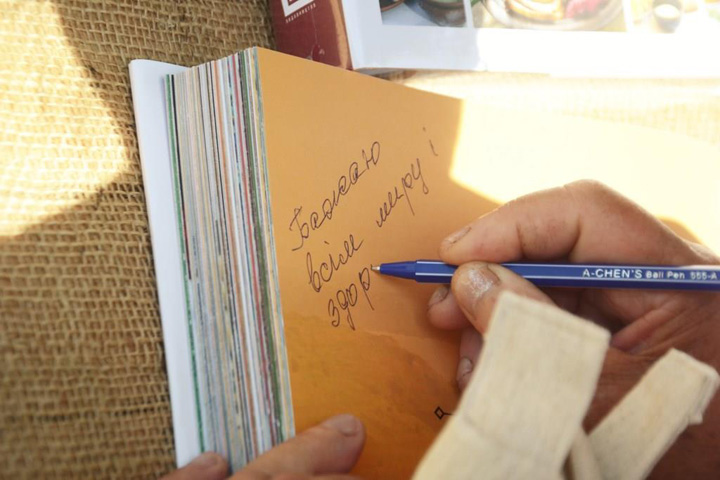 Бажаю
всім миру і
здор
A-CHEN'S Ball Pen 555-A